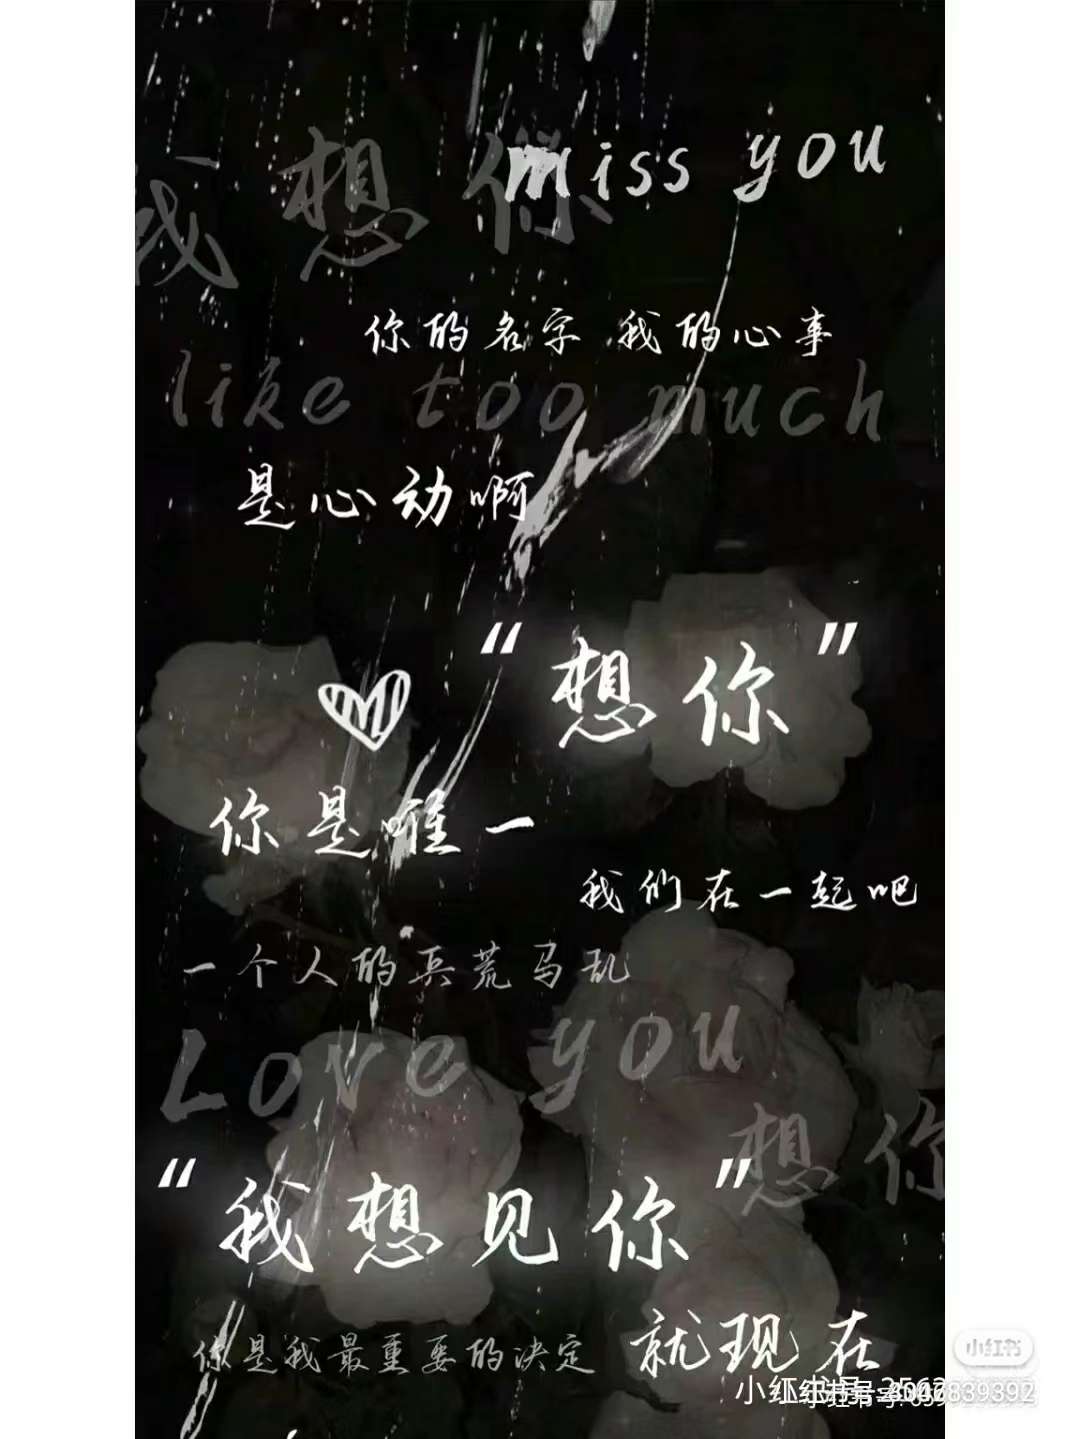 我想你
miss you
你的名字 我的心事
like too much
是心动啊
“想你”
你是唯一
我们在一起吧
一个人的兵荒马乱
Love you
想你
“我想见你”
就现在
你是我最重要的决定
小红书
小红书号: